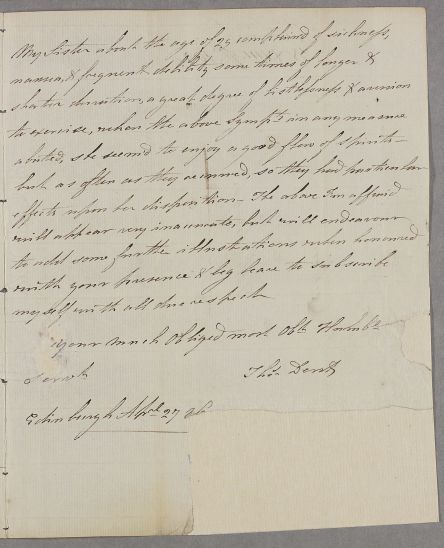 My Sister about the age of 29 complained of sickness,
nausea, & frequent debility some times of longer &
shorter duration, a great degree of listlessness & aversion
to exercise, when the above Sympts in any measure
abated, she seem'd to enjoy a good flow of Spirits –
but as often as they recurred, so they had particular
effects upon her disposition – The above I'm affraid
will appear very inaccurate, but will endeavour
to add some further illustrations when honoured
with your presence & beg leave to subscribe
myself with all due respect
your much Obliged most Obt Humble
Servt
Thos. Dent
Edinburgh Apl 27